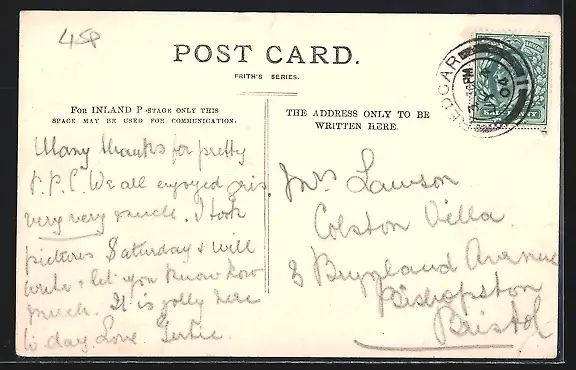 45p
POST CARD.
FRITH'S SERIES.
FOR INLAND POSTAGE ONLY THIS
SPACE MAY BE USED FOR COMMUNICATION.
THE ADDRESS ONLY TO BE
WRITTEN HERE.
REDCAR
Many thanks for pretty
P.P.C. We all enjoyed
very very much. I took
pictures Saturday & will
write & let you know how
much. It is jolly here
to day. Love. Gertie.
Mrs Lawson
Colston Villa
8 Avenue
Bishopston
Bristol